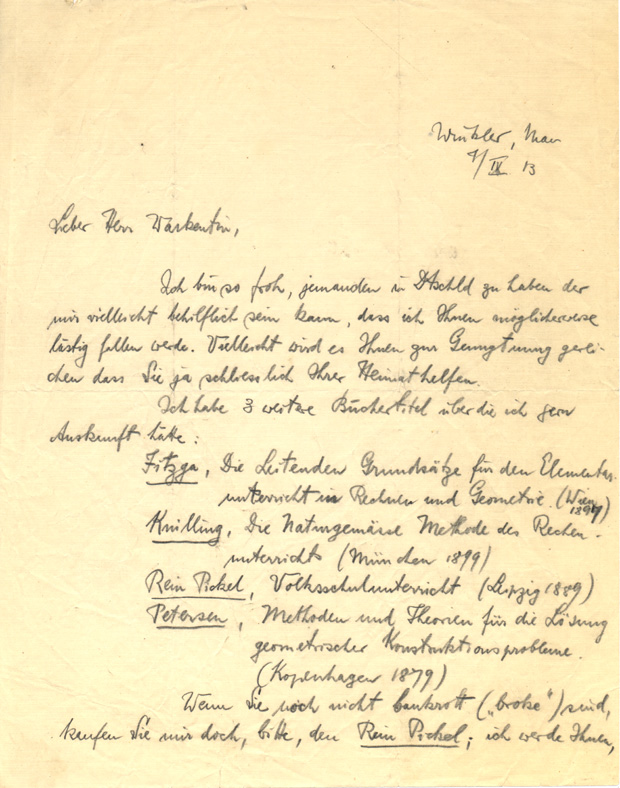 Winkler, Man
9/IX 13
Lieber Herr Warkentin,
Ich bin so froh, jemanden in Dtschld zu haben der
mir vielleicht behilflich sein kann, dass ich Ihnen möglicherweise
lästig fallen werde. Vielleicht wird es Ihnen zur Genugtuung gerei-
chen dass Sie ja schliesslich Ihrer Heimat helfen.
Ich habe 3 weitre Büchertitel über die ich gern
Auskunft hätte:
Fitzga, Die Leitenden Grundsätze für den Elementar-
unterricht in Rechnen und Geometrie. (Wien
1897)
Knilling, Die Naturgemässe Methode des Rechen-
unterrichts (München 1899)
Rein Pickel, Volksschulunterricht (Leipzig 1889)
Petersen, Methoden und Theorien für die Lösung
geometrischer Konstruktionsprobleme.
(Kopenhagen 1879)
Wenn Sie noch nicht bankrott („broke“) sind,
kaufen Sie mir doch, bitte, den Rein Pickel; ich werde Ihnen,